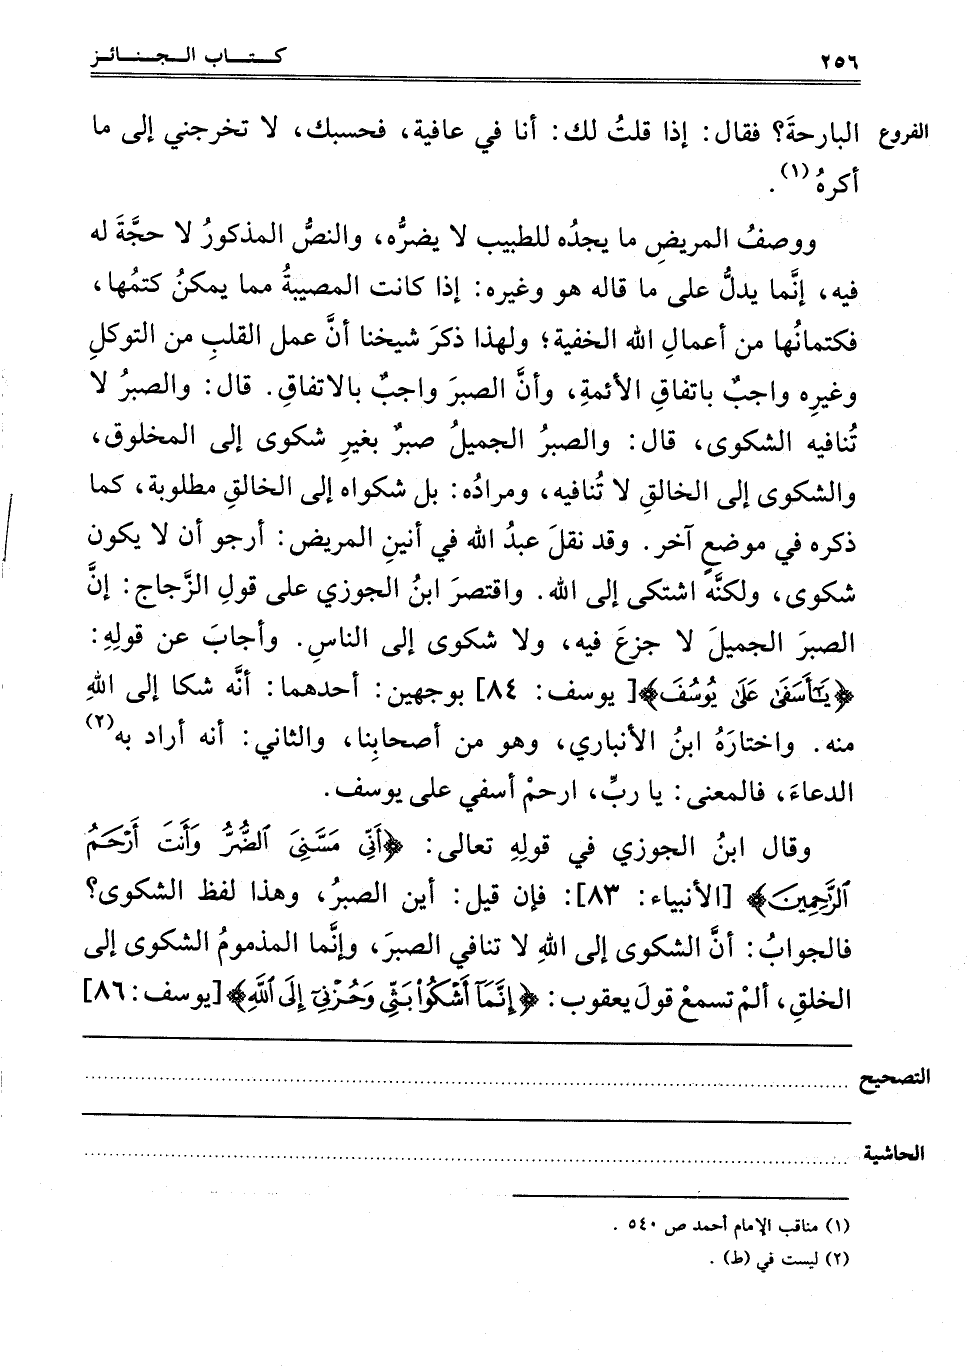 ٢٥٦
كـتـــاب الـجـنـــائـز
الفروع
البارحةَ؟ فقال: إذا قلتُ لك: أنا في عافية، فحسبك، لا تخرجني إلى ما
أكرهُ(١).
ووصفُ المريضِ ما يجدُه للطبيب لا يضرُّه، والنصُّ المذكورُ لا حجَّةَ له
فيه، إنَّما يدلُّ على ما قاله هو وغيره: إذا كانت المصيبةُ مما يمكنُ كتمُها،
فكتمانُها من أعمالِ الله الخفية؛ ولهذا ذكرَ شيخنا أنَّ عمل القلبِ من التوكلِ
وغيرِه واجبٌ باتفاقِ الأئمةِ، وأنَّ الصبرَ واجبٌ بالاتفاقِ. قال: والصبرُ لا
تُنافيه الشكوى، قال: والصبرُ الجميلُ صبرٌ بغيرِ شكوى إلى المخلوق،
والشكوى إلى الخالقِ لا تُنافيه، ومرادُه: بل شكواه إلى الخالقِ مطلوبة، كما
ذكره في موضعٍ آخر. وقد نقلَ عبدُ الله في أنينِ المريض: أرجو أن لا يكون
شكوى، ولكنَّه اشتكى إلى الله. واقتصرَ ابنُ الجوزي على قولِ الزَّجاج: إنَّ
الصبرَ الجميلَ لا جزعَ فيه، ولا شكوى إلى الناسِ. وأجابَ عن قولِهِ:
﴿يَٰٓأَسَفَىٰ عَلَىٰ يُوسُفَ﴾[ يوسف: ٨٤] بوجهين: أحدهما: أنَّه شكا إلى اللهِ
منه. واختارَهُ ابنُ الأنباري، وهو من أصحابِنا، والثاني: أنه أراد به(٢)
الدعاءَ، فالمعنى: يا ربِّ، ارحمْ أسفي على يوسف.
وقال ابنُ الجوزي في قولِهِ تعالى: ﴿أَنِّي مَسَّنِيَ ٱلضُّرُّ وَأَنتَ أَرْحَمُ
ٱلرَّٰحِمِينَ﴾ [الأنبياء: ٨٣]: فإن قيل: أين الصبرُ، وهذا لفظ الشكوى؟
فالجوابُ: أنَّ الشكوى إلى اللهِ لا تنافي الصبرَ، وإنَّما المذمومُ الشكوى إلى
الخلقِ، ألمْ تسمعْ قولَ يعقوب: ﴿إِنَّمَآ أَشْكُوا۟ بَثِّي وَحُزْنِيٓ إِلَى ٱللَّهِ﴾[يوسف:٨٦]
التصحيح
الحاشية
(١) مناقب الإمام أحمد ص ٥٤٠ .
(٢) ليست في (ط) .